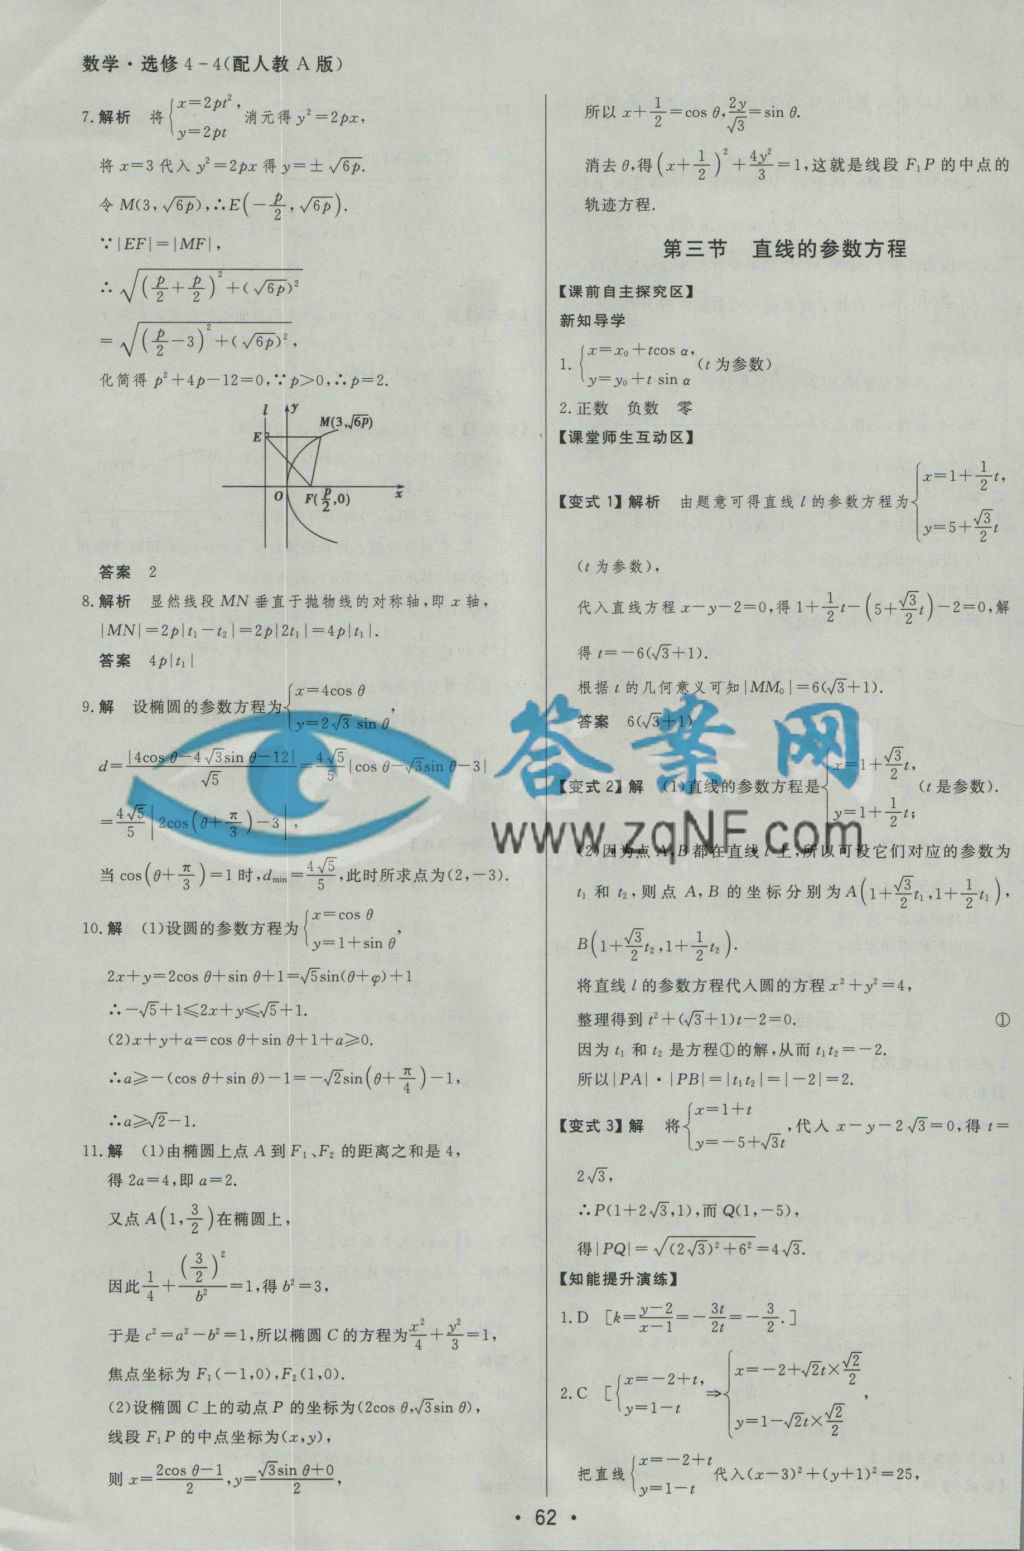 数学·选修4-4(配人教A版)
7.解析 将{x=2pt², y=2pt 消元得y²=2px,
将x=3代入y²=2px得y=±√(6p).
令M(3,√(6p)),∴E(-p/2,√(6p)).
∵|EF|=|MF|,
∴√((p/2+p/2)²+(√(6p))²
=√((p/2-3)²+(√(6p))²,
化简得p²+4p-12=0,∵p>0,∴p=2.
l y
M(3,√6p)
E
O F(p/2,0) x
答案 2
8.解析 显然线段MN垂直于抛物线的对称轴,即x轴,
|MN|=2p|t₁-t₂|=2p|2t₁|=4p|t₁|.
答案 4p|t₁|
9.解 设椭圆的参数方程为{x=4cos θ y=2√3 sin θ,
d=|4cos θ-4√3sin θ-12|/√5=4√5/5|cos θ-√3sin θ-3|
=4√5/5|2cos(θ+π/3)-3|,
当cos(θ+π/3)=1时,dmin=4√5/5,此时所求点为(2,-3).
10.解 (1)设圆的参数方程为{x=cos θ y=1+sin θ,
2x+y=2cos θ+sin θ+1=√5sin(θ+φ)+1
∴-√5+1≤2x+y≤√5+1.
(2)x+y+a=cos θ+sin θ+1+a≥0.
∴a≥-(cos θ+sin θ)-1=-√2sin(θ+π/4)-1,
∴a≥√2-1.
11.解 (1)由椭圆上点A到F₁、F₂的距离之和是4,
得2a=4,即a=2.
又点A(1,3/2)在椭圆上,
因此1/4+(3/2)²/b²=1,得b²=3,
于是c²=a²-b²=1,所以椭圆C的方程为x²/4+y²/3=1,
焦点坐标为F₁(-1,0),F₂(1,0).
(2)设椭圆C上的动点P的坐标为(2cos θ,√3sin θ),
线段F₁P的中点坐标为(x,y),
则x=(2cos θ-1)/2,y=(√3sin θ+0)/2,
所以x+1/2=cos θ,2y/√3=sin θ.
消去θ,得(x+1/2)²+4y²/3=1,这就是线段F₁P的中点的
轨迹方程.
第三节 直线的参数方程
【课前自主探究区】
新知导学
1.{x=x₀+tcos α, y=y₀+t sin α (t为参数)
2.正数 负数 零
【课堂师生互动区】
【变式1】解析 由题意可得直线l的参数方程为{x=1+1/2t, y=5+√3/2t
(t为参数),
代入直线方程x-y-2=0,得1+1/2t-(5+√3/2t)-2=0,解
得t=-6(√3+1).
根据t的几何意义可知|MM₀|=6(√3+1).
答案 6(√3+1)
【变式2】解 (1)直线的参数方程是{x=1+√3/2t, y=1+1/2t; (t是参数).
(2)因为点A,B都在直线l上,所以可设它们对应的参数为
t₁和t₂,则点A,B的坐标分别为A(1+√3/2t₁,1+1/2t₁),
B(1+√3/2t₂,1+1/2t₂).
将直线l的参数方程代入圆的方程x²+y²=4,
整理得到t²+(√3+1)t-2=0. ①
因为t₁和t₂是方程①的解,从而t₁t₂=-2.
所以|PA|·|PB|=|t₁t₂|=|-2|=2.
【变式3】解 将{x=1+t y=-5+√3t,代入x-y-2√3=0,得t=
2√3,
∴P(1+2√3,1),而Q(1,-5),
得|PQ|=√((2√3)²+6²)=4√3.
【知能提升演练】
1.D [k=(y-2)/(x-1)=-3t/2t=-3/2.]
2.C [{x=-2+t, y=1-t⇒{x=-2+√2t×√2/2 y=1-√2t×√2/2,
把直线{x=-2+t y=1-t代入(x-3)²+(y+1)²=25,
答案网
www.zqNF.com
·62·